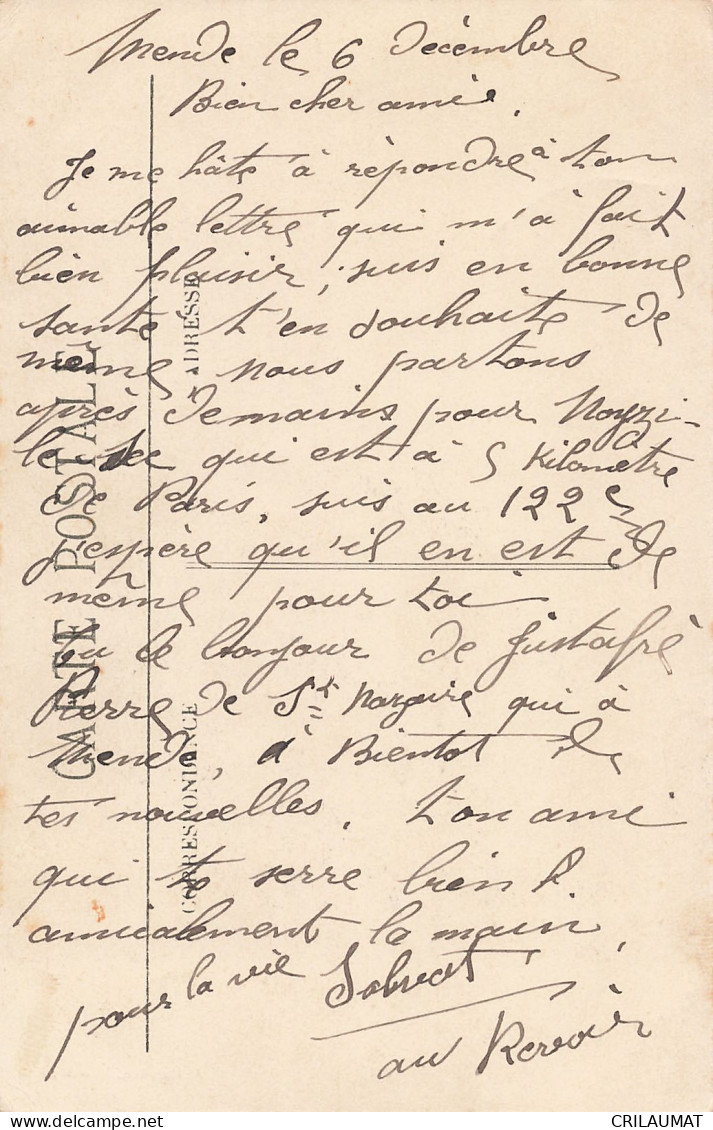 Mende le 6 décembre
Bien cher ami.
Je me hâte à répondre à ton
aimable lettre qui m'a fait
bien plaisir, suis en bonne
santé t'en souhaite de
même, nous partons
après demains pour Noyzi-
le Sec qui est à 5 Kilomètre
de Paris, suis au 122e
J'espère qu'il en est de
même pour toi
le bonjour de
Pierre de St Nazaire qui à
Mende, à Bientot de
tes nouvelles. ton ami
qui te serre bien
amicalement la main
pour la vie
au Revoir
CARTE POSTALE
CORRESPONDANCE
ADRESSE
CRILAUMAT